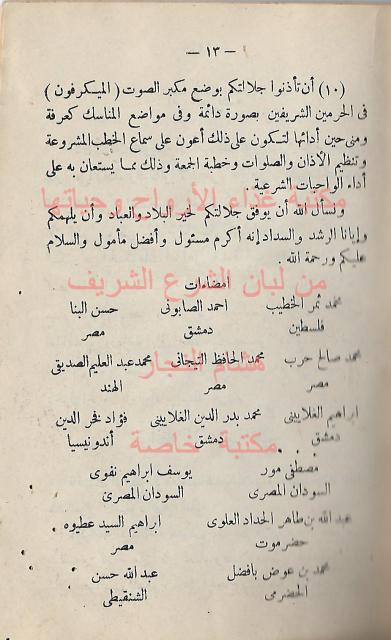 — ١٣ —
(١٠) أن تأذنوا جلالتكم بوضع مكبر الصوت (الميكرفون)
فى الحرمين الشريفين بصورة دائمة وفى مواضع المناسك كعرفة
ومنى حين أدائها لتسكون على ذلك أعون على سماع الخطب المشروعة
وتنظيم الأذان والصلوات وخطبة الجمعة وذلك مما يستعان به على
أداء الواجبات الشرعية .
مكتبة غذاء الأرواح وحياتها
ونسأل الله أن يوفق جلالتكم لخير البلاد والعباد وأن يلهمكم
وإيانا الرشد والسداد إنه أكرم مسئول وأفضل مأمول والسلام
عليكم ورحمة الله .
من لبان الشرع الشريف
امضاءات
محمد نمر الخطيب احمد الصابونى حسن البنا
فلسطين دمشق مصر
محمد صالح حرب محمد الحافظ التيجانى محمد عبد العليم الصديقى
هشام النجار
مصر مصر الهند
ابراهيم الغلايينى محمد بدر الدين الغلايينى فؤاد فخر الدين
دمشق دمشق أندونيسيا
مكتبة خاصة
مصطفى مور يوسف ابراهيم نقوى
السودان المصرى السودان المصرى
عبد الله بن طاهر الحداد العلوى ابراهيم السيد عطيوه
حضرموت مصر
محمد بن عوض بافضل عبد الله حسن
الحضرمى الشنقيطى